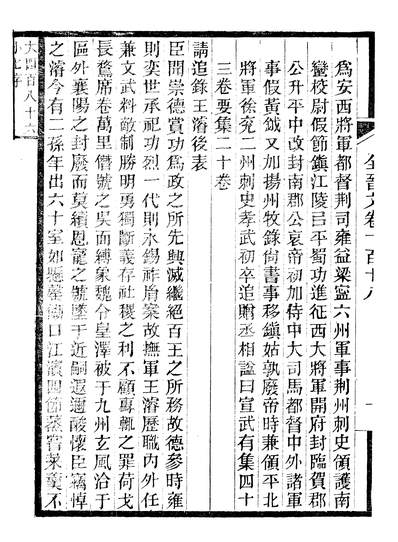 全晉文卷一百十八
一
為安西將軍都督荆司雍益梁寧六州軍事荆州刺史領護南
蠻校尉假節鎮江陵㠯平蜀功進征西大將軍開府封臨賀郡
公升平中改封南郡公哀帝初加侍中大司馬都督中外諸軍
事假黃鉞又加揚州牧錄尚書事移鎮姑孰廢帝時兼領平北
將軍徐兗二州刺史孝武初卒追贈丞相諡曰宣武有集四十
三卷要集二十卷
請追錄王濬後表
臣聞崇德賞功為政之所先興滅繼絕百王之所務故德參時雍
則奕世承祀功烈一代則永錫祚胤案故撫軍王濬歷職內外任
兼文武料敵制勝明勇獨斷義存社稷之利不顧專輒之罪荷戈
長騖席卷萬里僭號之吳面縛象魏今皇澤被于九州玄風洽于
區外襄陽之封廢而莫續恩寵之號墜于近嗣遐邇酸懷臣竊悼
之濬今有二孫年出六十室如懸磬餬口江濱四節蒸嘗菜羹不
大四百八十六